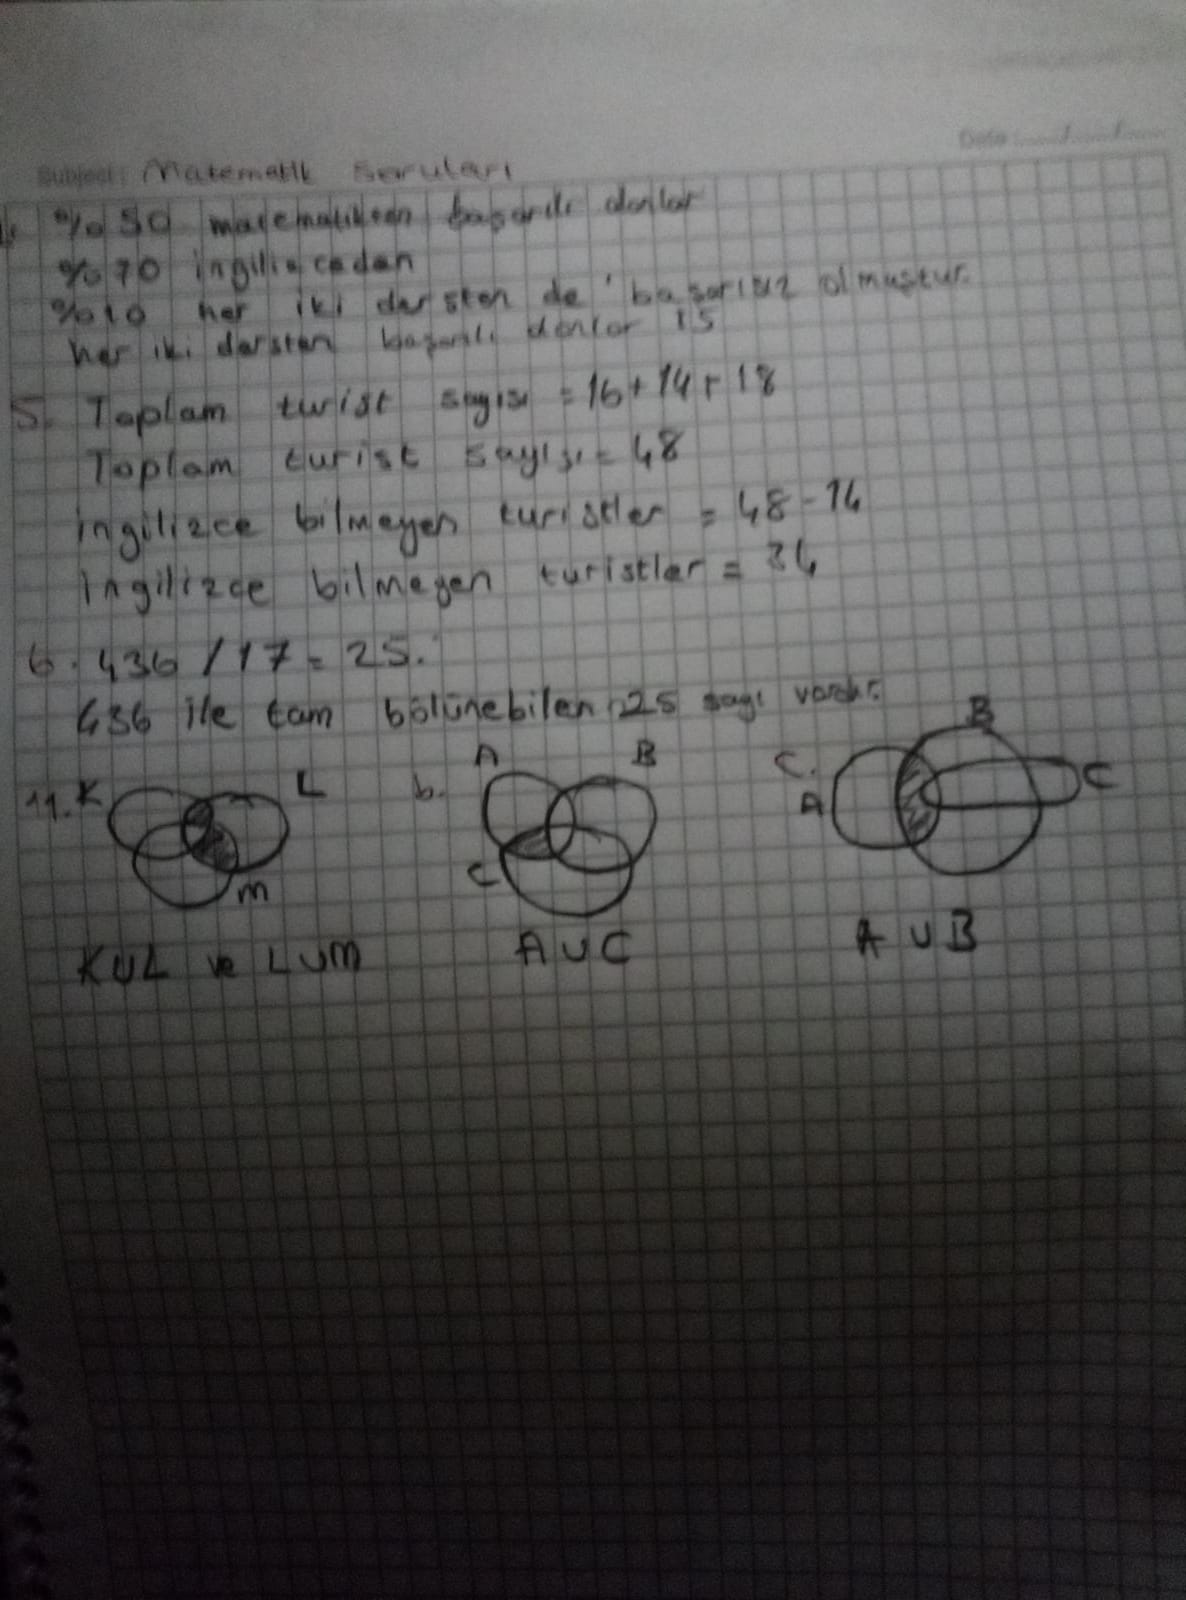 Subject: Matematik Soruları
Date
%50 matematikten başarılı olanlar
%70 ingilizceden
%10 her iki dersten de başarısız olmuştur.
her iki dersten başarılı olanlar 15
5. Toplam turist sayısı = 16+14+18
Toplam turist sayısı = 48
ingilizce bilmeyen turistler = 48-14
ingilizce bilmeyen turistler = 34
6. 436 / 17 = 25.
436 ile tam bölünebilen 25 sayı vardır.
11. K L M
b. A B C
C. A B C
KUL ve LUM
AUC
AUB